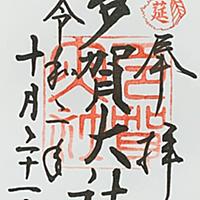 奉拝
多賀大社
令和二年
十月二十一
莚